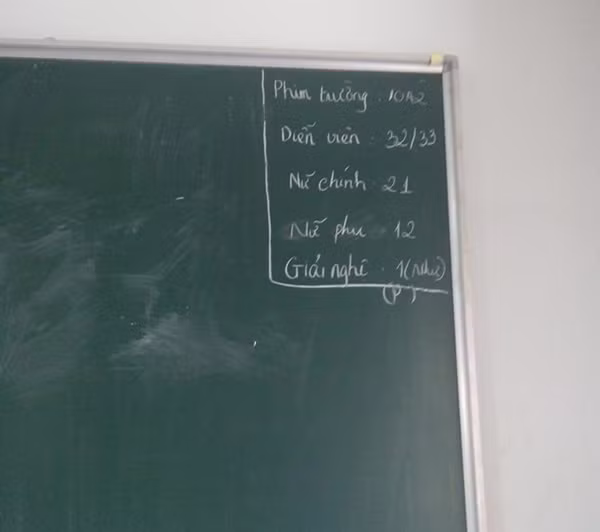 Phim trường : 10A2
Diễn viên : 32/33
Nữ chính : 21
Nữ phụ : 12
Giải nghệ : 1 (Như)
(P)